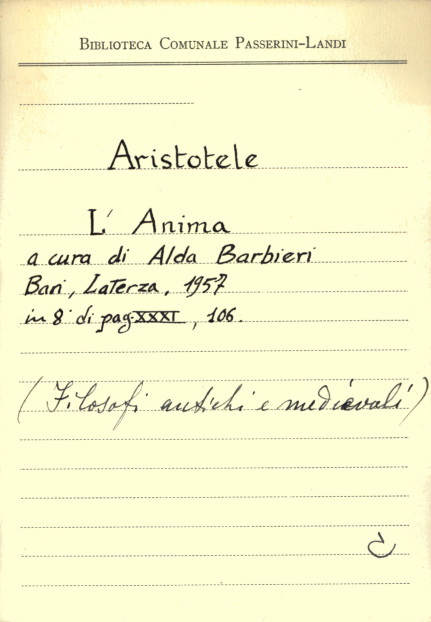 BIBLIOTECA COMUNALE PASSERINI-LANDI
Aristotele
L' Anima
a cura di Alda Barbieri
Bari, Laterza, 1957
in 8° di pag. XXXI, 106.
(Filosofi antichi e medievali)